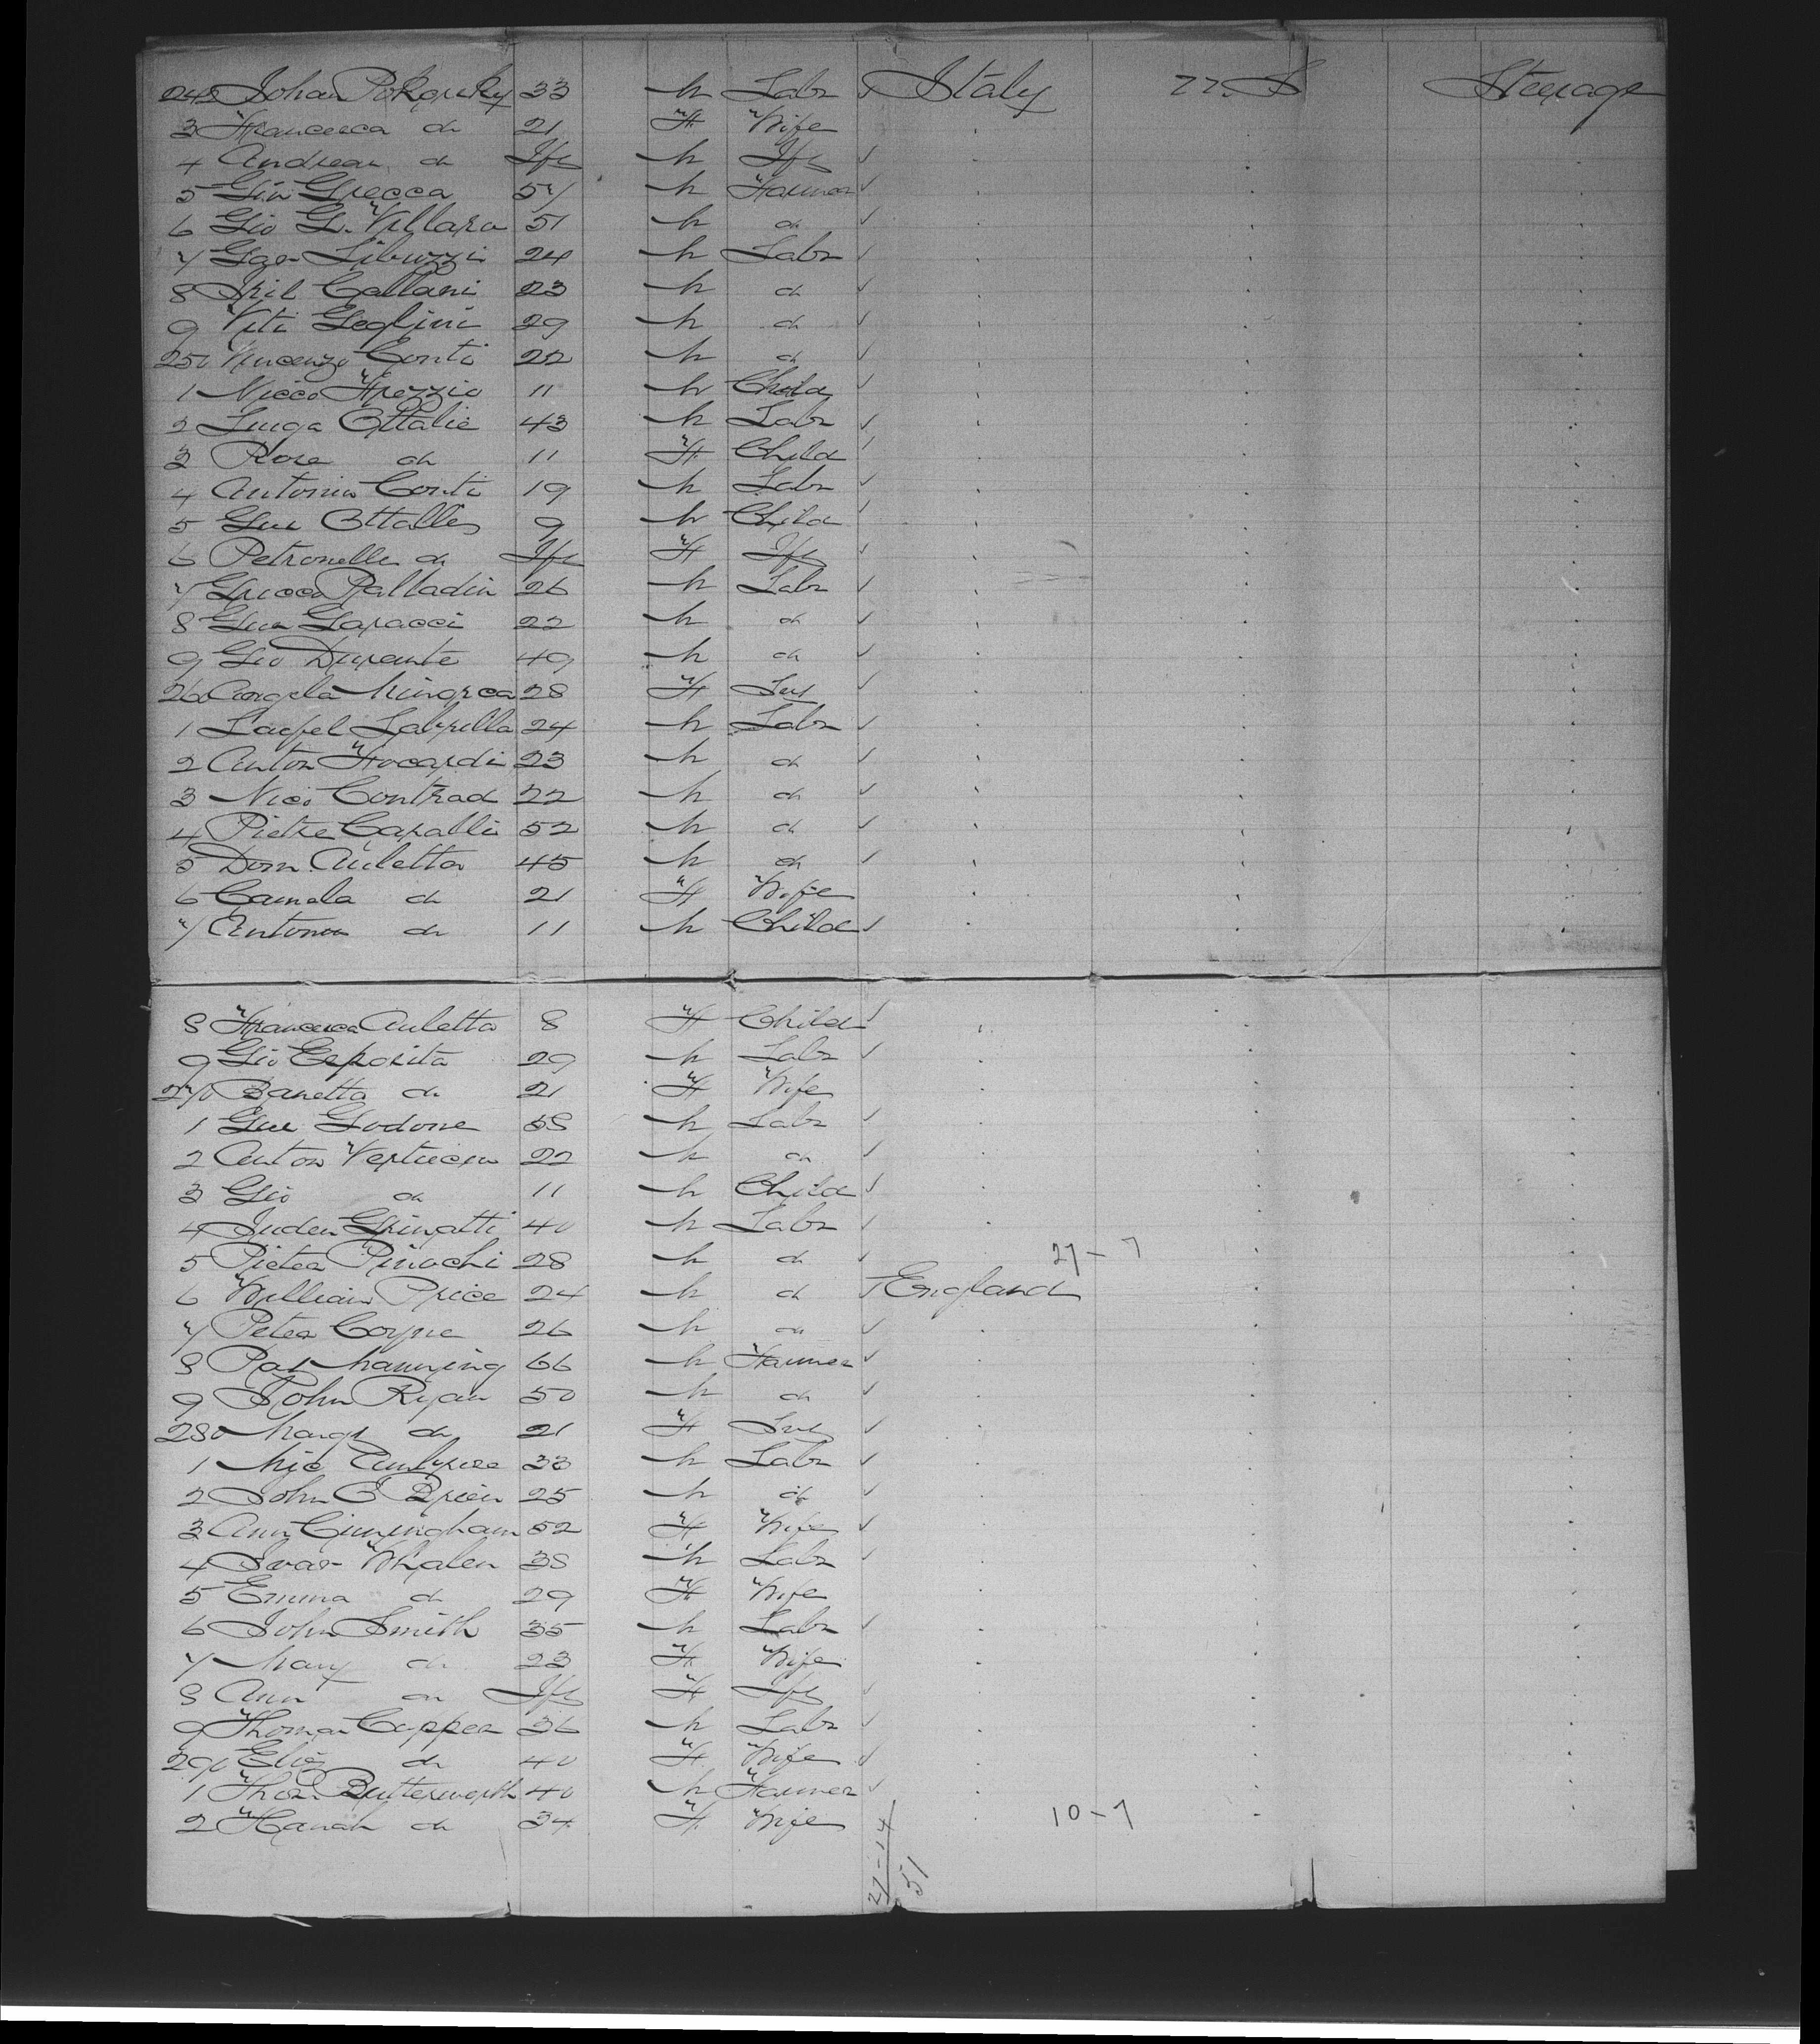 242 Johan Pokorsky 33 M Labr ✓ Italy U.S. Steerage
3 Francesca do 21 F Wife
4 Andrea do Ift M Ift ✓
5 Gio Grecca 57 M Farmer ✓
6 Gio G. Villara 51 M do ✓
7 24 M Labr ✓
8 Cattani 23 M do ✓
9 Viti Geglini 29 M do ✓
250 Vincenzo Conti 22 M do ✓
1 Nicco Frezzio 11 M Child ✓
2 Luiga Ottalie 43 M Labr ✓
3 Rose do 11 F Child ✓
4 Antonio Conti 19 M Labr ✓
5 Ottalles 9 M Child ✓
6 Petronelle do Ift F Ift ✓
7 Palladin 26 M Labr ✓
8 Garacci 22 M do ✓
9 Gio Durante 49 M do ✓
260 Angela Mingrea 28 F ✓
1 24 M Labr ✓
2 Anton Frocardi 23 M do ✓
3 Nico Contrad 22 M do ✓
4 Pietre Capalli 52 M do ✓
5 Dom. Auletta 45 M do ✓
6 Camela do 21 F Wife
7 Antonio do 11 M Child ✓
8 Francesca Auletta 8 F Child ✓
9 Gio Esposita 29 M Labr ✓
270 Banetta do 21 F Wife
1 Gue Godone 58 M Labr ✓
2 Anton 22 M do ✓
3 Gio do 11 M Child ✓
4 Grinatti 40 M Labr ✓
5 Pieter Pinochi 28 M do ✓ 27-7
6 William Price 24 M do ✓ England
7 Peter Coyne 26 M do ✓
8 Pat Manning 66 M Farmer ✓
9 John Ryan 50 M do ✓
280 Margt do 21 F ✓
1 Mic 33 M Labr ✓
2 John O Brien 25 M do ✓
3 Ann Cunningham 52 F Wife ✓
4 Whalen 38 M Labr ✓
5 Emma do 29 F Wife
6 John Smith 35 M Labr ✓
7 Mary do 23 F Wife
8 Ann do Ift F Ift ✓
9 Thomas Copper 36 M Labr ✓
290 Eliz do 40 F Wife ✓
1 Thos. Butterworth 40 M Farmer ✓
2 Hanah do 34 F Wife 10-7
27-14
51